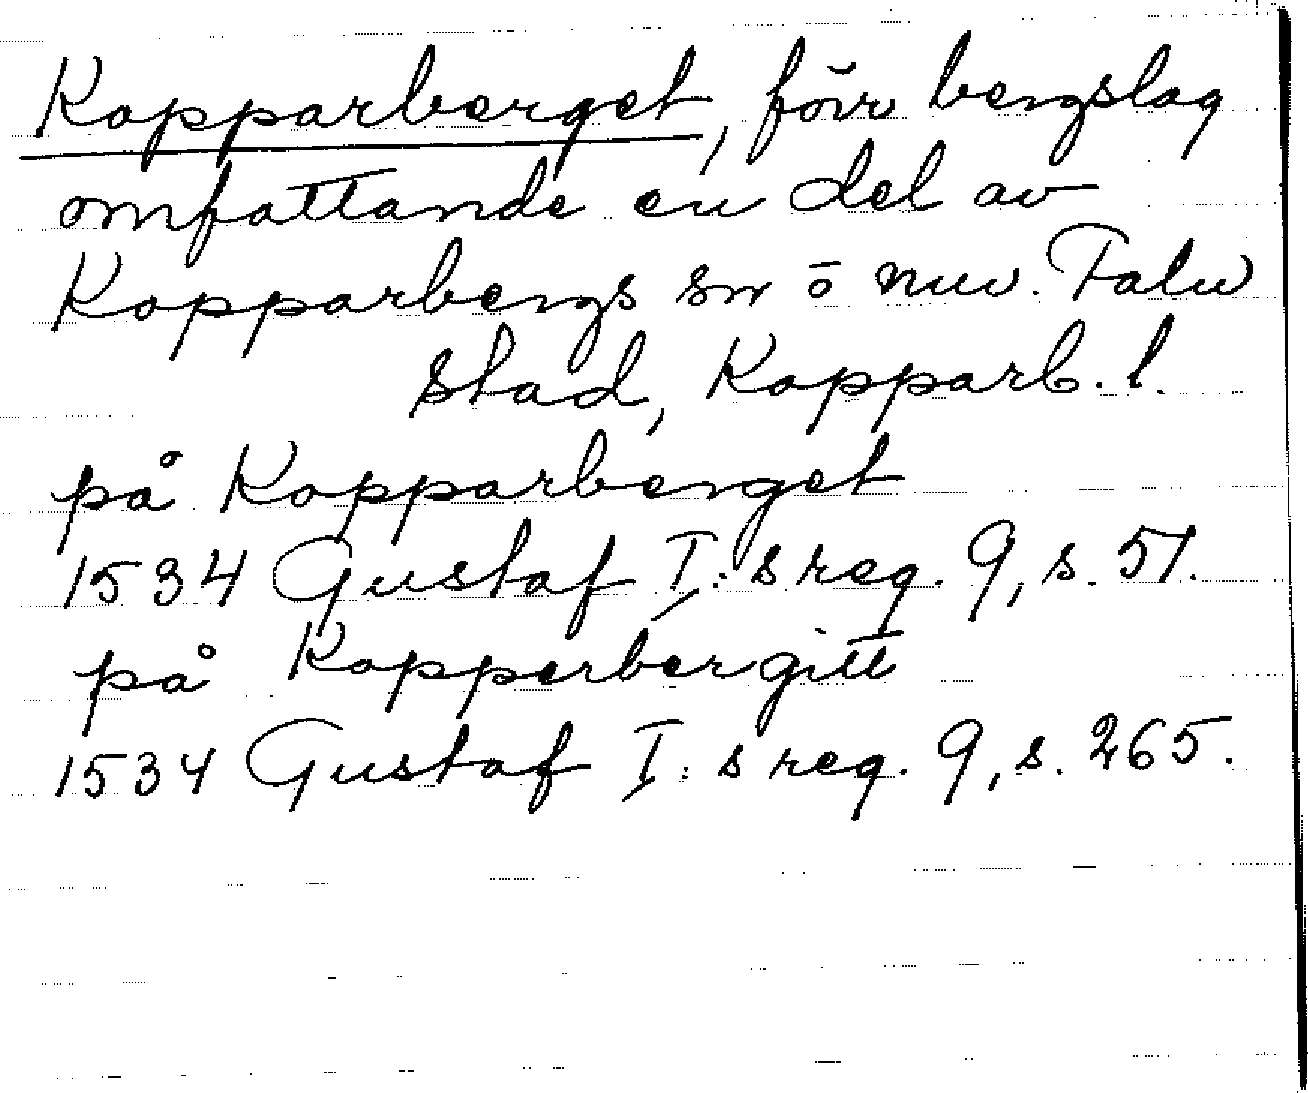 Kopparberget, förr bergslag
omfattande en del av
Kopparbergs sn o nuv. Falu
stad, Kopparb. l.
på Kopparberget
1534 Gustaf I:s reg. 9, s. 51.
på Kopperbergitt
1534 Gustaf I:s reg. 9, s. 265.